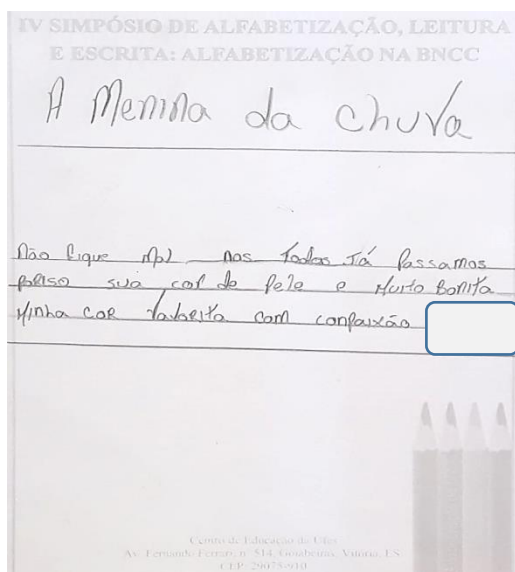 IV SIMPÓSIO DE ALFABETIZAÇÃO, LEITURA
E ESCRITA: ALFABETIZAÇÃO NA BNCC
A Menina da chuva
Não fique mal nos todos Já Passamos
PoRiso sua cor de Pele e Muito Bonita
Minha coR com compaixão
Centro de Educação da Ufes
Av. Fernando Ferrari, nº 514, Goiabeiras, Vitória, ES
CEP: 29075-910